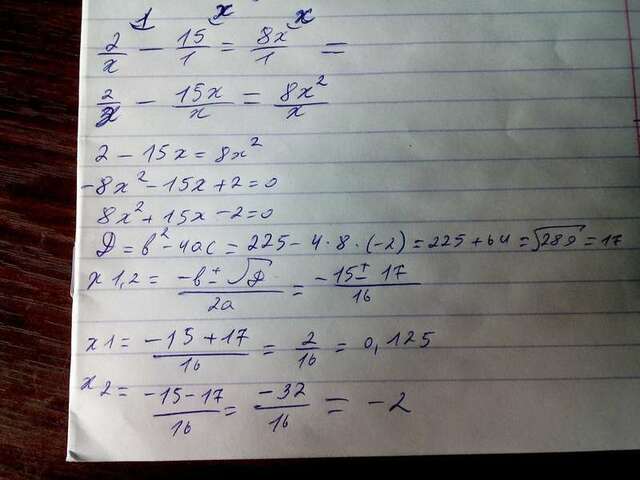 1 x x
2/x - 15/1 = 8x/1 =
2/x - 15x/x = 8x²/x
2 - 15x = 8x²
-8x² - 15x + 2 = 0
8x² + 15x - 2 = 0
D = b² - 4ac = 225 - 4 · 8 · (-2) = 225 + 64 = √289 = 17
x1,2 = -b ± √D / 2a = -15 ± 17 / 16
x1 = -15 + 17 / 16 = 2/16 = 0,125
x2 = -15 - 17 / 16 = -32/16 = -2